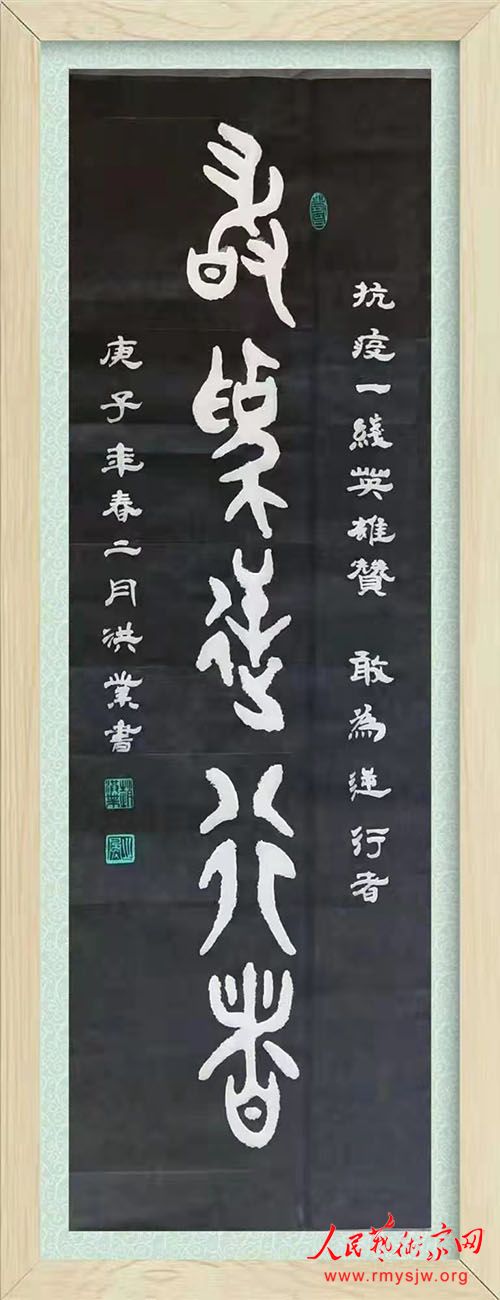 抗疫一綫英雄贊 敢為逆行者
敢為逆行者
庚子年春二月洪業書
人民藝術家网
www.rmysjw.org